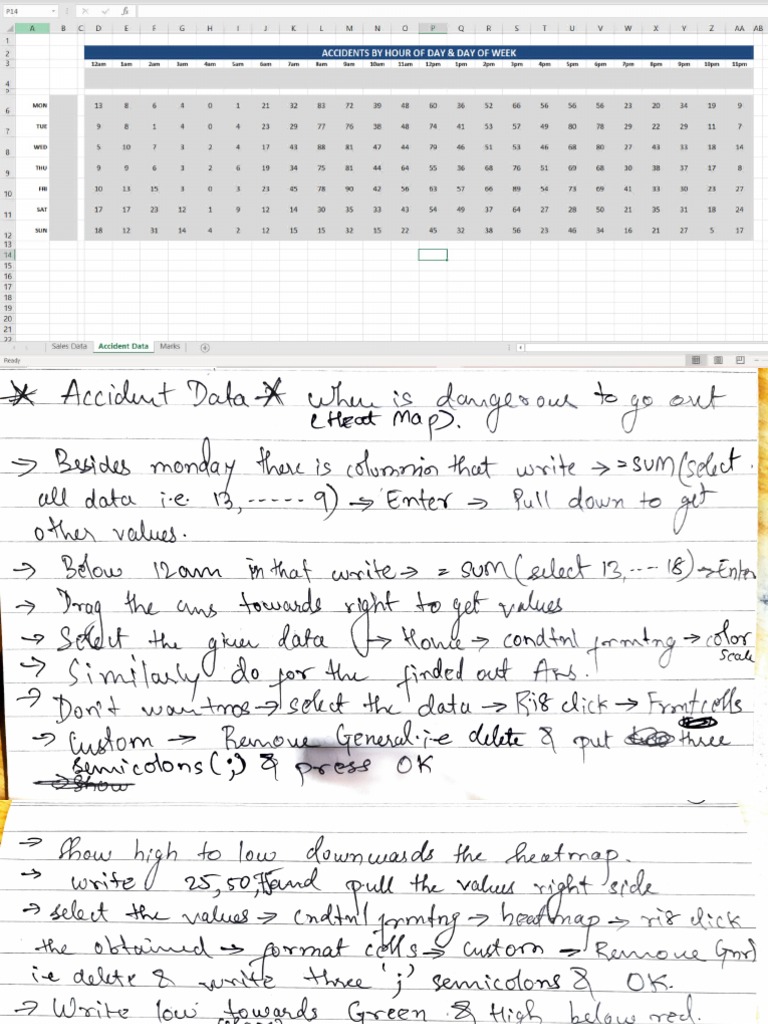 P14
A B C D E F G H I J K L M N O P Q R S T U V W X Y Z AA AB
1
2 ACCIDENTS BY HOUR OF DAY & DAY OF WEEK
3 12am 1am 2am 3am 4am 5am 6am 7am 8am 9am 10am 11am 12pm 1pm 2pm 3pm 4pm 5pm 6pm 7pm 8pm 9pm 10pm 11pm
4
5
6 MON 13 8 6 4 0 1 21 32 83 72 39 48 60 36 52 66 56 56 56 23 20 34 19 9
7 TUE 9 8 1 4 0 4 23 29 77 76 38 48 74 41 53 57 49 80 78 29 22 29 11 7
8 WED 5 10 7 3 2 4 17 43 88 81 47 44 79 46 51 53 46 68 80 27 43 33 18 14
9 THU 9 9 6 3 2 6 19 34 75 81 44 64 55 36 68 76 51 69 68 30 38 37 17 8
10 FRI 10 13 15 3 0 3 23 45 78 90 42 56 63 57 66 89 54 73 69 41 33 30 23 27
11 SAT 17 17 23 12 1 9 12 14 30 35 33 43 54 49 37 64 27 28 50 21 35 31 18 24
12 SUN 18 12 31 14 4 2 12 15 15 32 15 22 45 32 38 56 23 46 34 16 21 27 5 17
13
14
15
16
17
18
19
20
21
22
Sales Data Accident Data Marks
Ready
Accident Data when is dangerous to go out
(Heat Map).
→ Besides monday there is columnin that write → =SUM(select
all data i.e. 13, ------ 9) → Enter → Pull down to get
other values.
→ Below 12am in that write → = SUM(select 13, --- 18) → Enter
→ Drag the ans towards right to get values
→ Select the given data → Home → condtnl formtng → color
scale
→ Similarly do for the finded out Ans.
→ Don't want nos → select the data → Rig click → Frmt cells
→ Custom → Remove General i.e delete & put three
semicolons (;) & press OK
→ Show
→ Show high to low downwards the heatmap.
→ Write 25,50,75 and pull the values right side
→ select the values → cndtnl formtng → heatmap → rig click
the obtained → format cells → custom → Remove Gnrl
i.e delete & write three ';' semicolons & OK.
→ Write low towards Green & High below red.